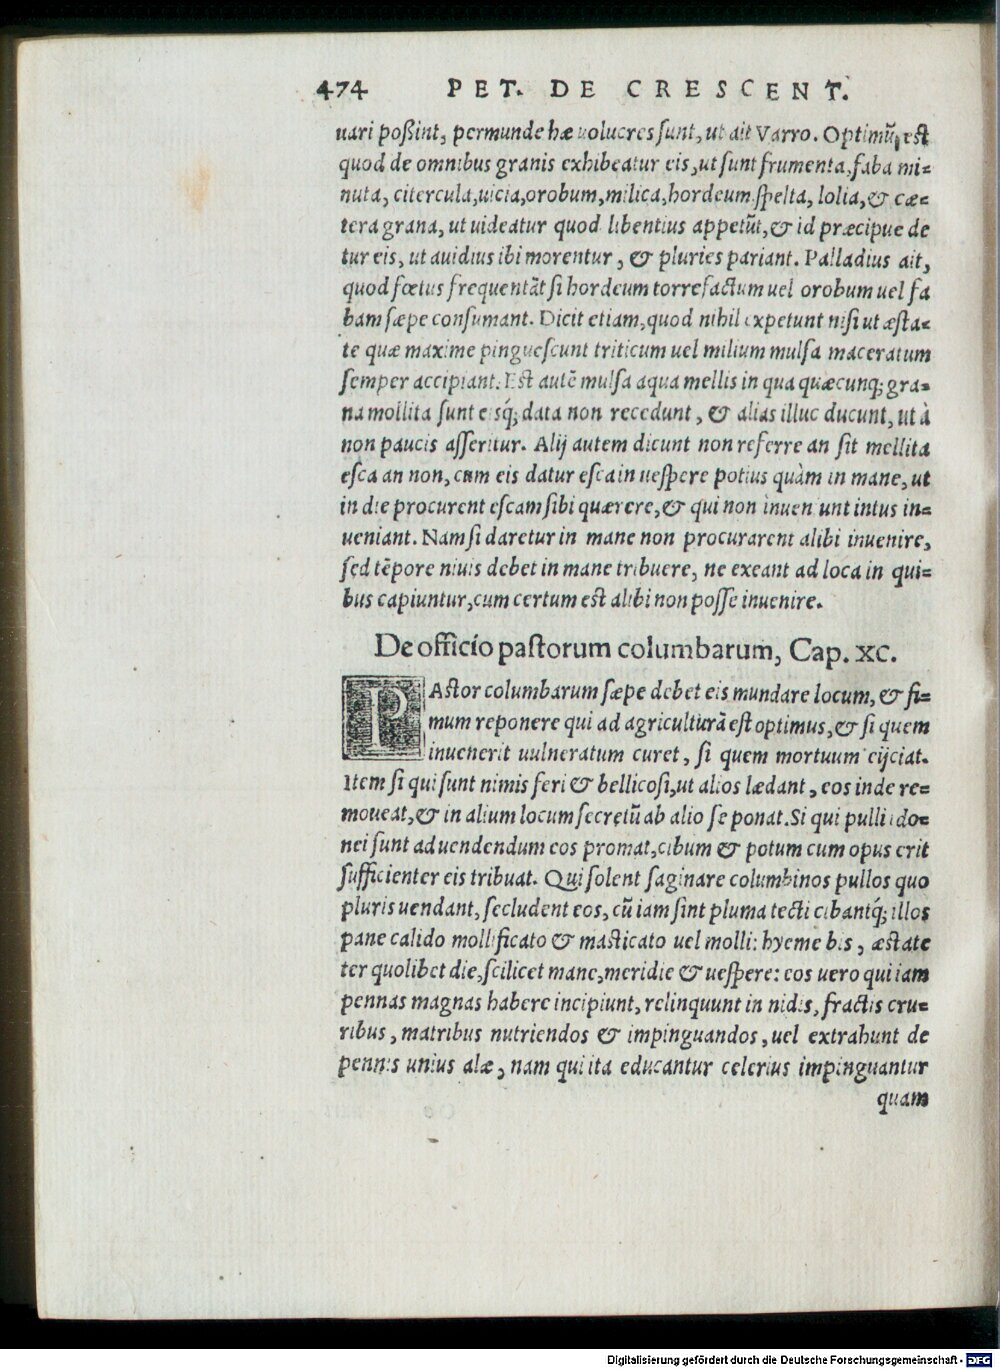 474 PET. DE CRESCENT.
uari poßint, permunde hæ uolucres sunt, ut ait Varro. Optimũ est
quod de omnibus granis exhibeatur eis, ut sunt frumenta, faba mi=
nuta, citercula, uicia, orobum, milica, hordeum spelta, lolia, & cæ=
tera grana, ut uideatur quod libentius appetũt, & id præcipue de
tur eis, ut auidius ibi morentur, & pluries pariant. Palladius ait,
quod fœtus frequentãt si hordeum torrefactum uel orobum uel fa
bam sæpe consumant. Dicit etiam, quod nihil expetunt nisi ut æsta=
te quæ maxime pinguescunt triticum uel milium mulsa maceratum
semper accipiant. Est autẽ mulsa aqua mellis in qua quæcunq; gra=
na mollita sunt eisq́; data non recedunt, & alias illuc ducunt, ut à
non paucis asseritur. Alij autem dicunt non referre an sit mellita
esca an non, cum eis datur esca in uespere potius quàm in mane, ut
in die procurent escam sibi quærere, & qui non inueniunt intus in=
ueniant. Nam si daretur in mane non procurarent alibi inuenire,
sed tẽpore niuis debet in mane tribuere, ne exeant ad loca in qui=
bus capiuntur, cum certum est alibi non posse inuenire.
De officio pastorum columbarum, Cap. XC.
PAstor columbarum sæpe debet eis mundare locum, & fi=
mum reponere qui ad agriculturã est optimus, & si quem
inuenerit uulneratum curet, si quem mortuum eijciat.
Item si qui sunt nimis feri & bellicosi, ut alios lædant, eos inde re=
moueat, & in alium locum secretũ ab alio se ponat. Si qui pulli ido=
nei sunt ad uendendum eos promat, cibum & potum cum opus erit
sufficienter eis tribuat. Qui solent saginare columbinos pullos quo
pluris uendant, secludent eos, cũ iam sint pluma tecti cibantq́; illos
pane calido mollificato & masticato uel molli: hyeme bis, æstate
ter quolibet die, scilicet mane, meridie & uespere: eos uero qui iam
pennas magnas habere incipiunt, relinquunt in nidis, fractis cru=
ribus, matribus nutriendos & impinguandos, uel extrahunt de
pennis unius alæ, nam qui ita educantur celerius impinguantur
quam
Digitalisierung gefördert durch die Deutsche Forschungsgemeinschaft - DFG